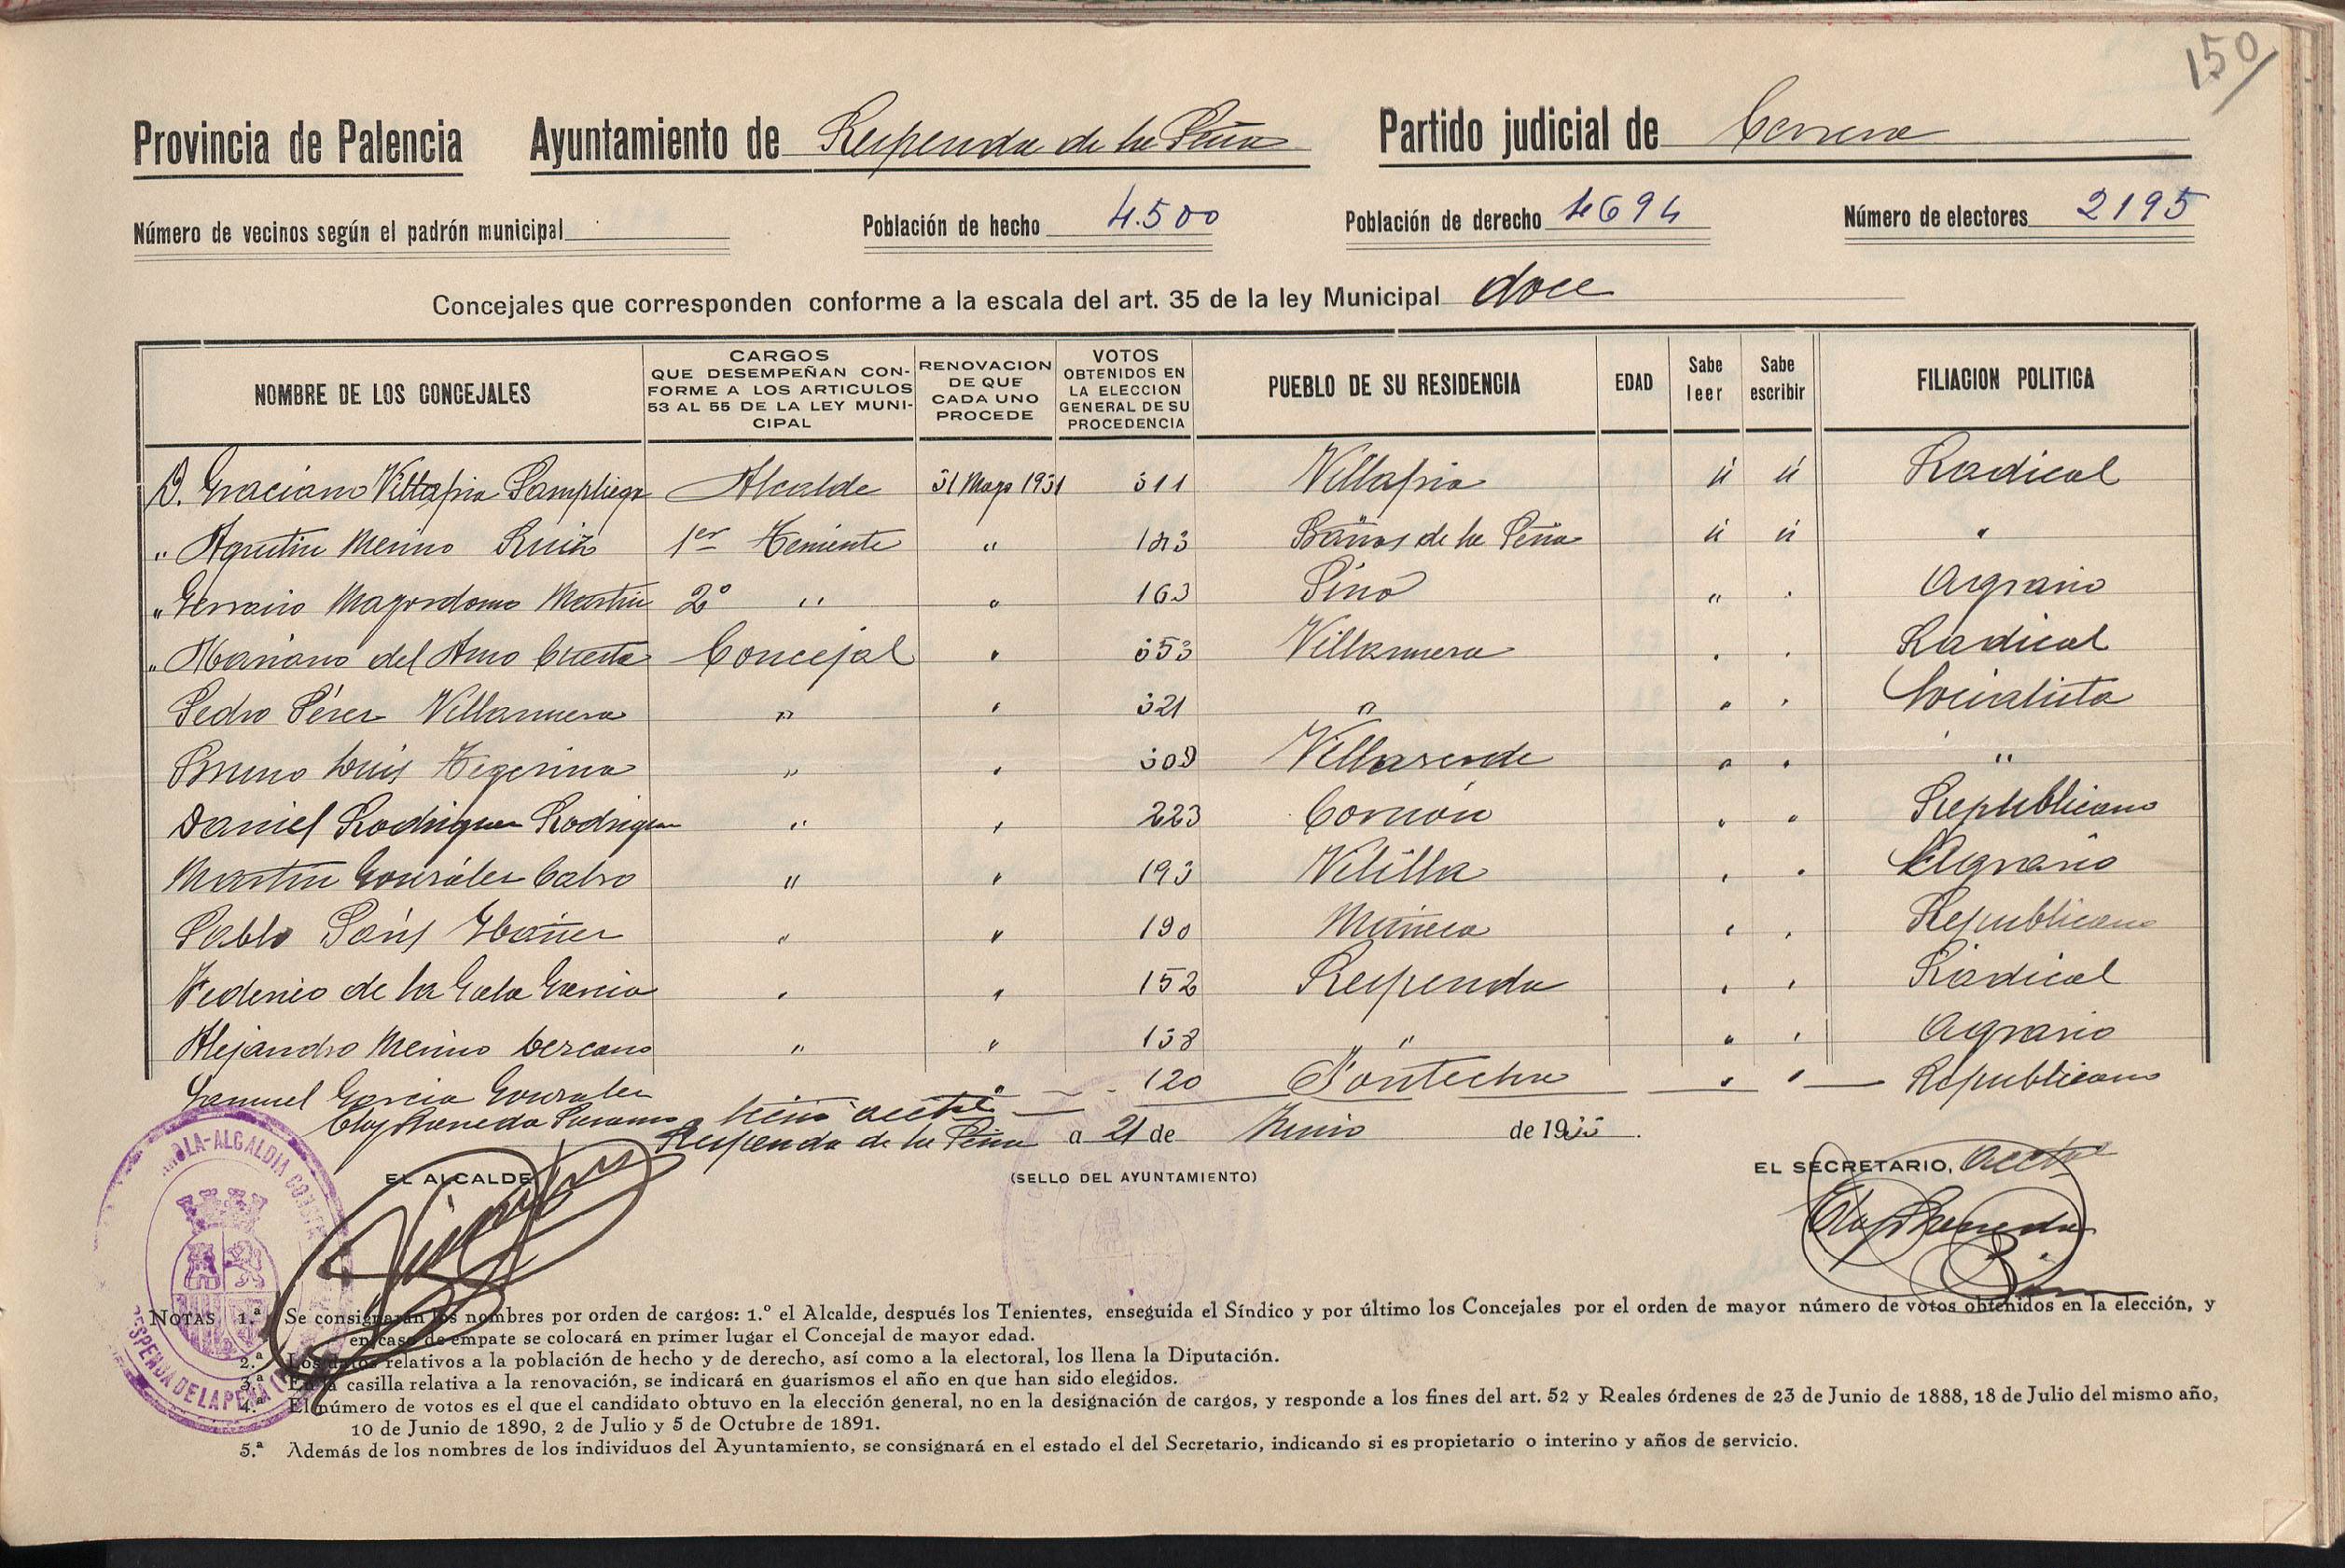 150
Provincia de Palencia Ayuntamiento de Respenda de la Peña Partido judicial de Cervera
Número de vecinos según el padrón municipal Población de hecho 4.500 Población de derecho 4694 Número de electores 2195
Concejales que corresponden conforme a la escala del art. 35 de la ley Municipal doce
NOMBRE DE LOS CONCEJALES CARGOS QUE DESEMPEÑAN CONFORME A LOS ARTICULOS 53 AL 55 DE LA LEY MUNICIPAL RENOVACION DE QUE CADA UNO PROCEDE VOTOS OBTENIDOS EN LA ELECCION GENERAL DE SU PROCEDENCIA PUEBLO DE SU RESIDENCIA EDAD Sabe leer Sabe escribir FILIACION POLITICA
D. Graciano Villafria Sampliega Alcalde 31 Mayo 1931 311 Villafria si si Radical
" Agustin Merino Ruiz 1er Teniente " 183 Baños de la Peña si si "
" Mayordomo Martin 2º " " 163 Pino " " Agrario
" Mariano del Amo Cuesta Concejal " 353 Villanueva " " Radical
Pedro Pérez Villanueva " " 321 " " " Socialista
Bruno Luis Tegerina " " 309 Villaverde " " "
Daniel Rodriguez Rodriguez " " 223 Cornón " " Republicano
Martin González Calvo " " 193 Velilla " " Agrario
Pablo Ibañez " " 190 Muñeca " " Republicano
Federico de la Gala Garcia " " 152 Respenda " " Radical
Alejandro Merino " " 138 " " " Agrario
Samuel Garcia Gonzalez " 120 Fontecha " " Republicano
Eloy Srio acctal
Respenda de la Peña a 21 de Junio de 1933.
EL ALCALDE (SELLO DEL AYUNTAMIENTO) EL SECRETARIO, acctal
NOTAS 1.ª Se consignarán los nombres por orden de cargos: 1.º el Alcalde, después los Tenientes, enseguida el Síndico y por último los Concejales por el orden de mayor número de votos obtenidos en la elección, y
en caso de empate se colocará en primer lugar el Concejal de mayor edad.
2.ª Los datos relativos a la población de hecho y de derecho, así como a la electoral, los llena la Diputación.
3.ª En la casilla relativa a la renovación, se indicará en guarismos el año en que han sido elegidos.
4.ª El número de votos es el que el candidato obtuvo en la elección general, no en la designación de cargos, y responde a los fines del art. 52 y Reales órdenes de 23 de Junio de 1888, 18 de Julio del mismo año,
10 de Junio de 1890, 2 de Julio y 5 de Octubre de 1891.
5.ª Además de los nombres de los individuos del Ayuntamiento, se consignará en el estado el del Secretario, indicando si es propietario o interino y años de servicio.